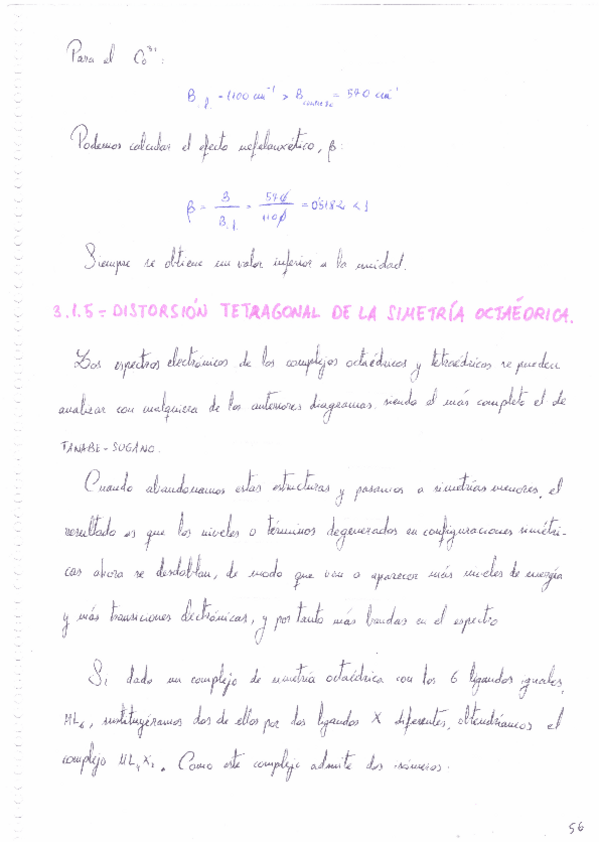 Para el Co³⁺:
B i.l. = 1100 cm⁻¹ > B complejo = 570 cm⁻¹
Podemos calcular el efecto nefelauxético, β:
β = B / B i.l. = 570 / 1100 = 0'5182 < 1
Siempre se obtiene un valor inferior a la unidad.
3.1.5 - DISTORSIÓN TETRAGONAL DE LA SIMETRÍA OCTAÉDRICA.
Los espectros electrónicos de los complejos octaédricos y tetraédricos se pueden
analizar con cualquiera de los anteriores diagramas siendo el más completo el de
TANABE-SUGANO.
Cuando abandonamos estas estructuras y pasamos a simetrías menores, el
resultado es que los niveles o términos degenerados en configuraciones simétri-
cas ahora se desdoblan, de modo que van a aparecer más niveles de energía
y más transiciones electrónicas, y por tanto más bandas en el espectro
Si dado un complejo de simetría octaédrica con los 6 ligandos iguales,
ML₆, sustituyéramos dos de ellos por dos ligandos X diferentes, obtendríamos el
complejo ML₄X₂. Como este complejo admite dos isómeros.
56